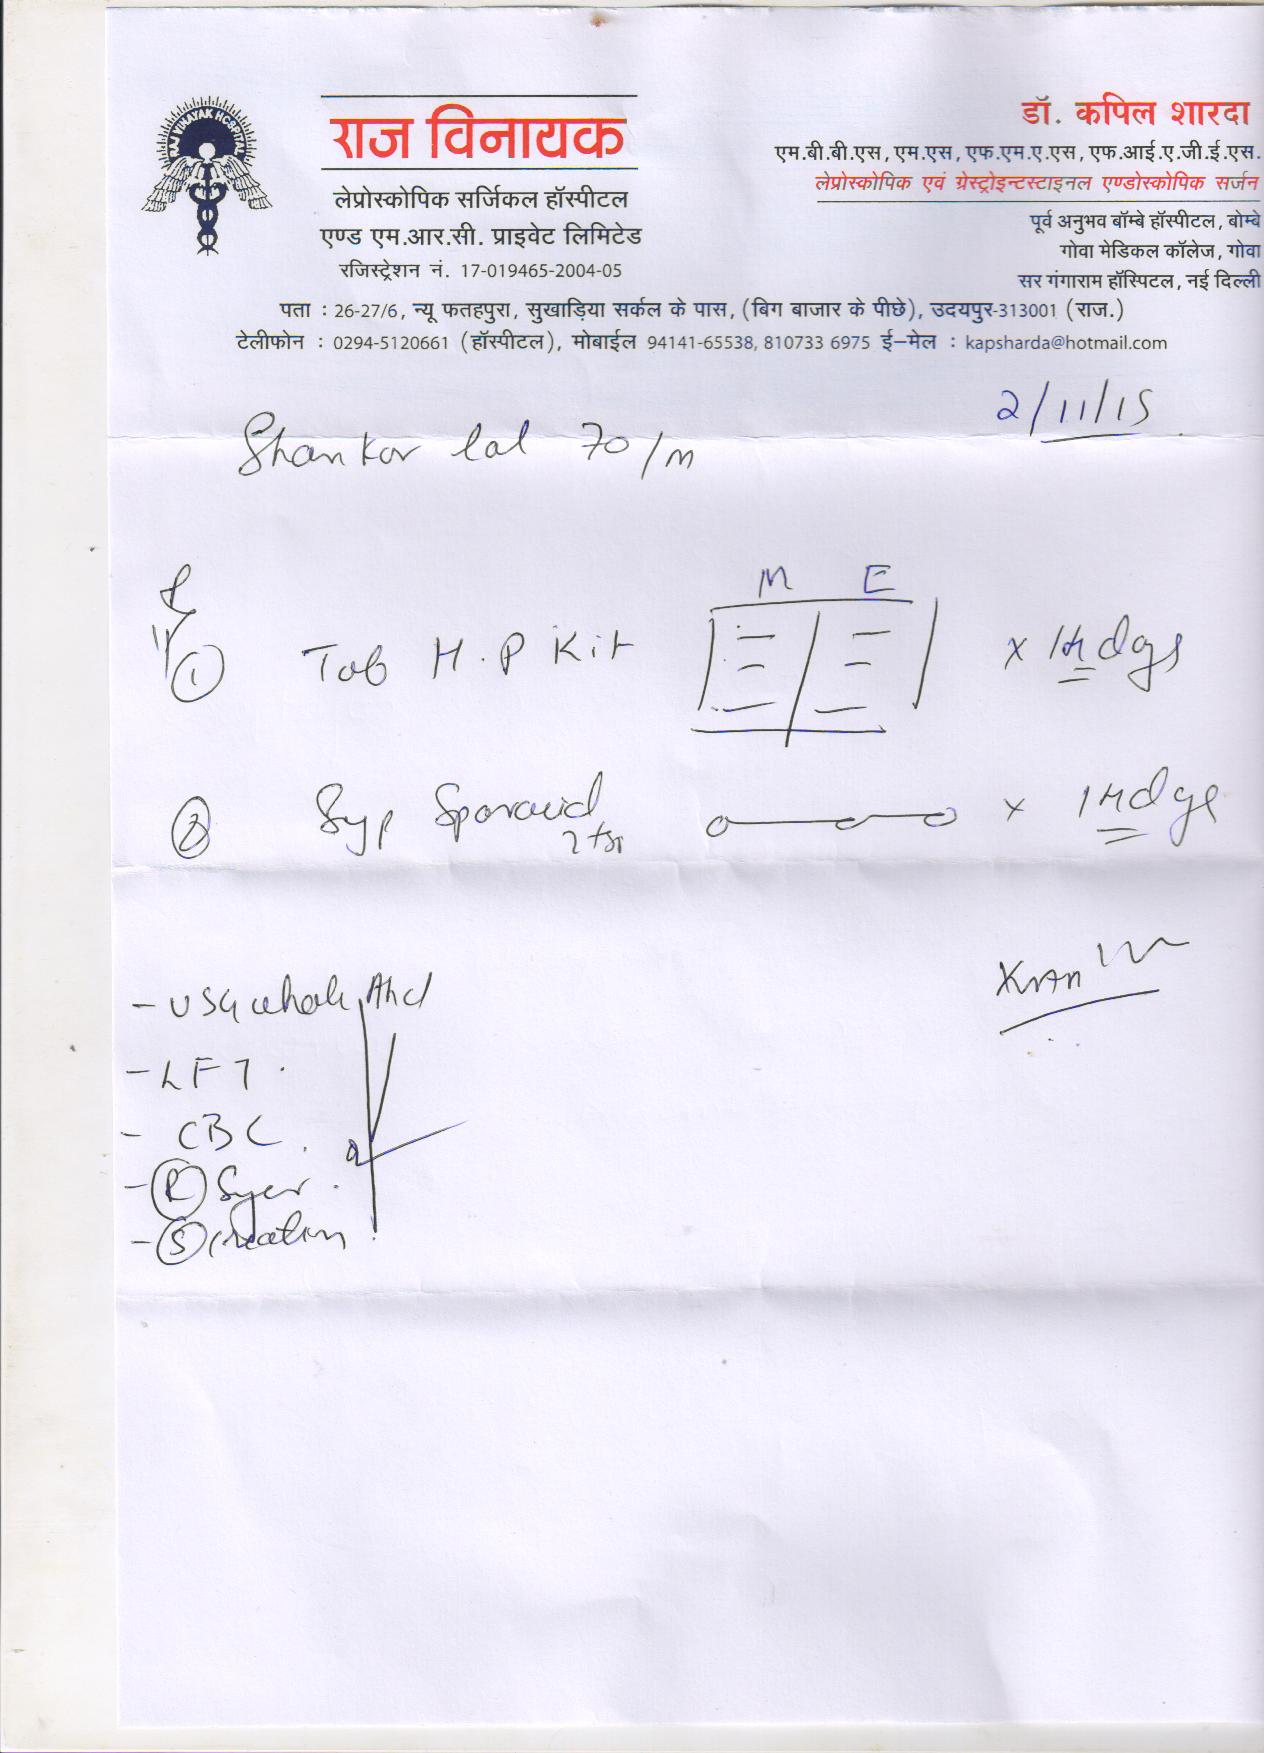 RAJ VINAYAK HOSPITAL
राज विनायक
लेप्रोस्कोपिक सर्जिकल हॉस्पीटल
एण्ड एम.आर.सी. प्राइवेट लिमिटेड
रजिस्ट्रेशन नं. 17-019465-2004-05
डॉ. कपिल शारदा
एम.बी.बी.एस, एम.एस, एफ.एम.ए.एस, एफ.आई.ए.जी.ई.एस.
लेप्रोस्कोपिक एवं ग्रेस्ट्रोइन्टस्टाइनल एण्डोस्कोपिक सर्जन
पूर्व अनुभव बॉम्बे हॉस्पीटल, बोम्बे
गोवा मेडिकल कॉलेज, गोवा
सर गंगाराम हॉस्पिटल, नई दिल्ली
पता : 26-27/6, न्यू फतहपुरा, सुखाड़िया सर्कल के पास, (बिग बाजार के पीछे), उदयपुर-313001 (राज.)
टेलीफोन : 0294-5120661 (हॉस्पीटल), मोबाईल 94141-65538, 810733 6975 ई-मेल : kapsharda@hotmail.com
2/11/15
Shankar lal 70/m
M E
① Tab H.P Kit x 14 days
② Syp x 14 days
- USG whole Abd
- LFT.
- CBC.
- Ⓡ Sugar.
- Ⓢ creatinin